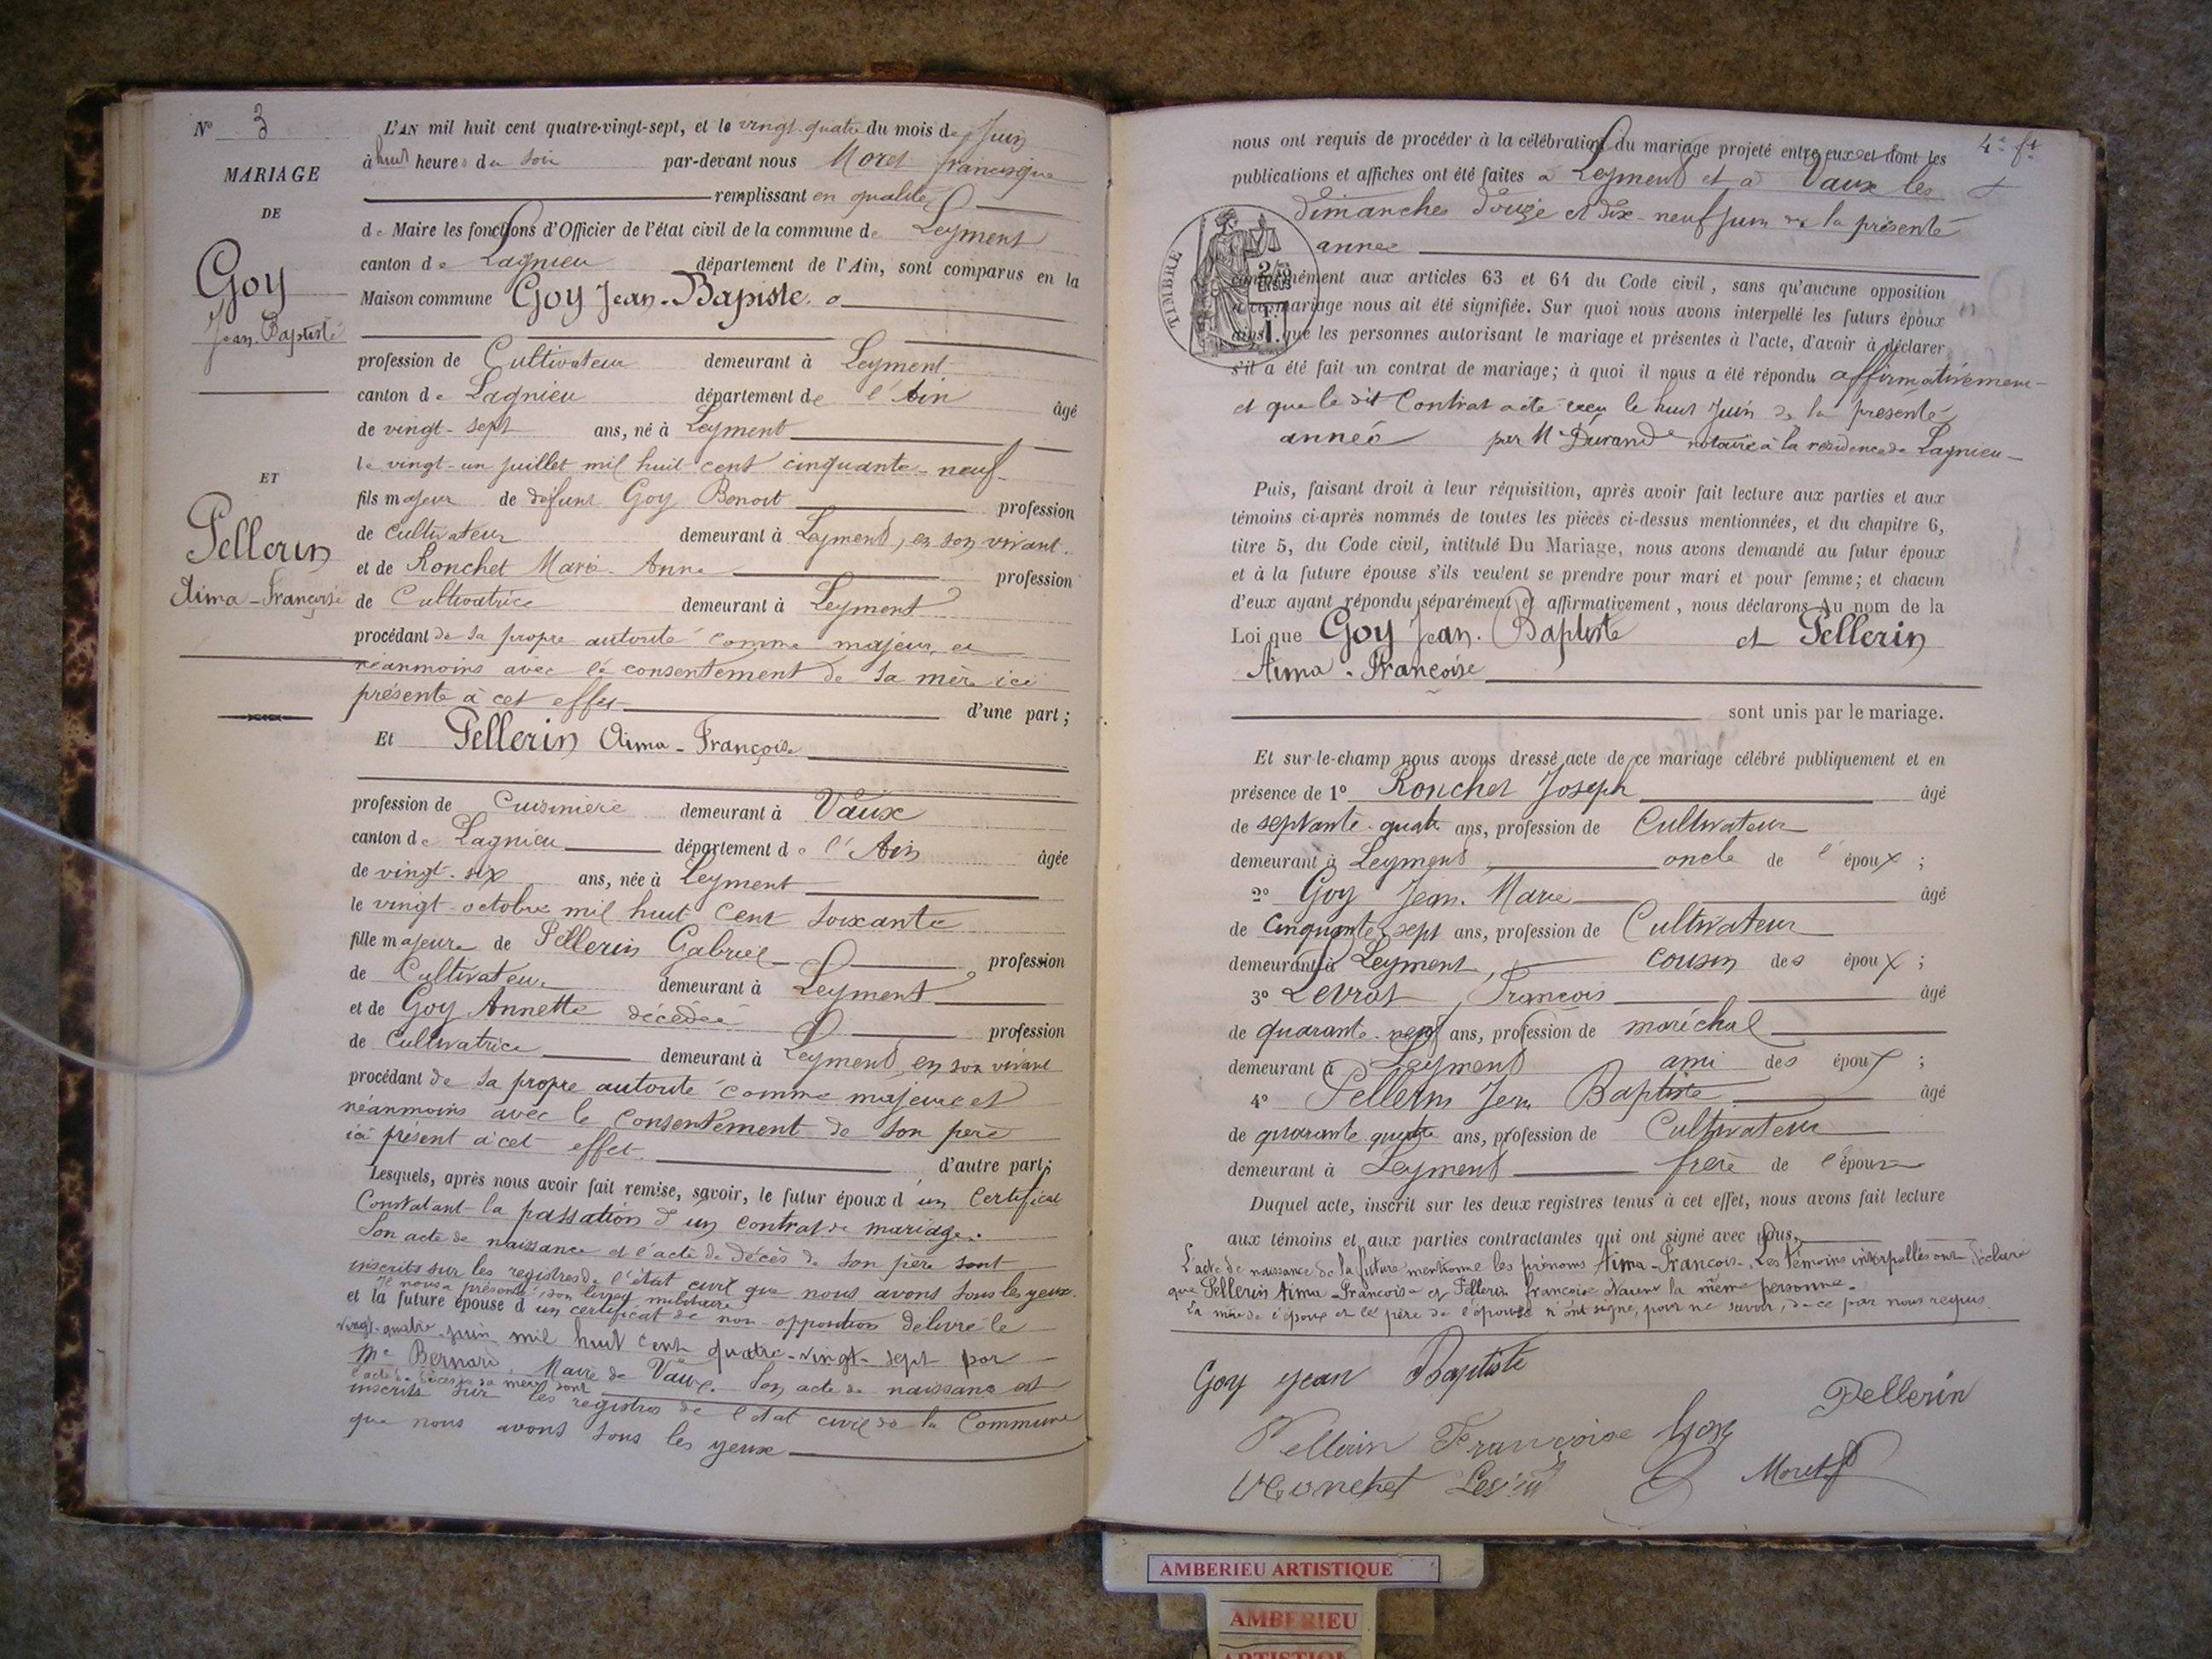 N° 3
MARIAGE
DE
Goy
Jean-Baptiste
ET
Pellerin
Aima-Françoise
L'AN mil huit cent quatre-vingt-sept, et le vingt-quatre du mois de Juin
à huit heures du soir par-devant nous Moret francisque
remplissant en qualité
de Maire les fonctions d'Officier de l'état civil de la commune de Leyment
canton de Lagnieu département de l'Ain, sont comparus en la
Maison commune Goy Jean-Bapiste
profession de Cultivateur demeurant à Leyment
canton de Lagnieu département de l'Ain âgé
de vingt-sept ans, né à Leyment
le vingt-un juillet mil huit cent cinquante-neuf
fils majeur de défunt Goy Benoit profession
de cultivateur demeurant à Leyment, en son vivant
et de Ronchet Marie-Anne profession
de Cultivatrice demeurant à Leyment
procédant de sa propre autorité comme majeur, et
néanmoins avec le consentement de sa mère ici
présente à cet effet d'une part;
Et Pellerin Aima-Françoise
profession de Cuisinière demeurant à Vaux
canton de Lagnieu département de l'Ain âgée
de vingt-six ans, née à Leyment
le vingt octobre mil huit cent soixante
fille majeure de Pellerin Gabriel profession
de Cultivateur demeurant à Leyment
et de Goy Annette décédée profession
de Cultivatrice demeurant à Leyment, en son vivant
procédant de sa propre autorité comme majeure et
néanmoins avec le consentement de son père
ici présent à cet effet. d'autre part;
Lesquels, après nous avoir fait remise, savoir, le futur époux d'un Certificat
Constatant la passation d'un contrat de mariage.
Son acte de naissance et l'acte de décès de son père sont
inscrits sur les registres de l'état civil que nous avons sous les yeux.
Il nous a présenté son livret militaire
et la future épouse d'un certificat de non-opposition délivré le
vingt-quatre juin mil huit cent quatre-vingt-sept par
Mr Bernard, Maire de Vaux. Son acte de naissance et
l'acte de décès de sa mère sont
inscrits sur les registres de l'état civil de la Commune
que nous avons sous les yeux
4e ft
nous ont requis de procéder à la célébration du mariage projeté entre eux et dont les
publications et affiches ont été faites à Leyment et à Vaux les
dimanches douze et dix-neuf juin de la présente
année
TIMBRE
conformément aux articles 63 et 64 du Code civil, sans qu'aucune opposition
à ce mariage nous ait été signifiée. Sur quoi nous avons interpellé les futurs époux
ainsi que les personnes autorisant le mariage et présentes à l'acte, d'avoir à déclarer
s'il a été fait un contrat de mariage; à quoi il nous a été répondu affirmativement
et que le dit Contrat a été reçu le huit Juin de la présente
année par Me Durand notaire à la résidence de Lagnieu
Puis, faisant droit à leur réquisition, après avoir fait lecture aux parties et aux
témoins ci-après nommés de toutes les pièces ci-dessus mentionnées, et du chapitre 6,
titre 5, du Code civil, intitulé Du Mariage, nous avons demandé au futur époux
et à la future épouse s'ils veulent se prendre pour mari et pour femme; et chacun
d'eux ayant répondu séparément et affirmativement, nous déclarons Au nom de la
Loi que Goy Jean-Baptiste et Pellerin
Aima-Françoise
sont unis par le mariage.
Et sur-le-champ nous avons dressé acte de ce mariage célébré publiquement et en
présence de 1° Ronchet Joseph âgé
de septante-quatre ans, profession de Cultivateur
demeurant à Leyment, oncle de l'époux;
2° Goy Jean-Marie âgé
de Cinquante-sept ans, profession de Cultivateur
demeurant à Leyment, cousin des époux;
3° Levrat François âgé
de quarante-neuf ans, profession de maréchal
demeurant à Leyment ami des époux;
4° Pellerin Jean Baptiste âgé
de quarante-quatre ans, profession de Cultivateur
demeurant à Leyment frère de l'épouse
Duquel acte, inscrit sur les deux registres tenus à cet effet, nous avons fait lecture
aux témoins et aux parties contractantes qui ont signé avec nous,
L'acte de naissance de la future mentionne les prénoms Aima-François. Les témoins interpellés ont déclaré
que Pellerin Aima-Françoise et Pellerin françoise étaient la même personne.
La mère de l'époux et le père de l'épouse n'ont signé, pour ne savoir, de ce par nous requis
Goy jean Baptiste
Pellerin
Pellerin Françoise Goy
Ronchet Levrat Moret f
AMBERIEU ARTISTIQUE
AMBERIEU
ARTISTIQUE